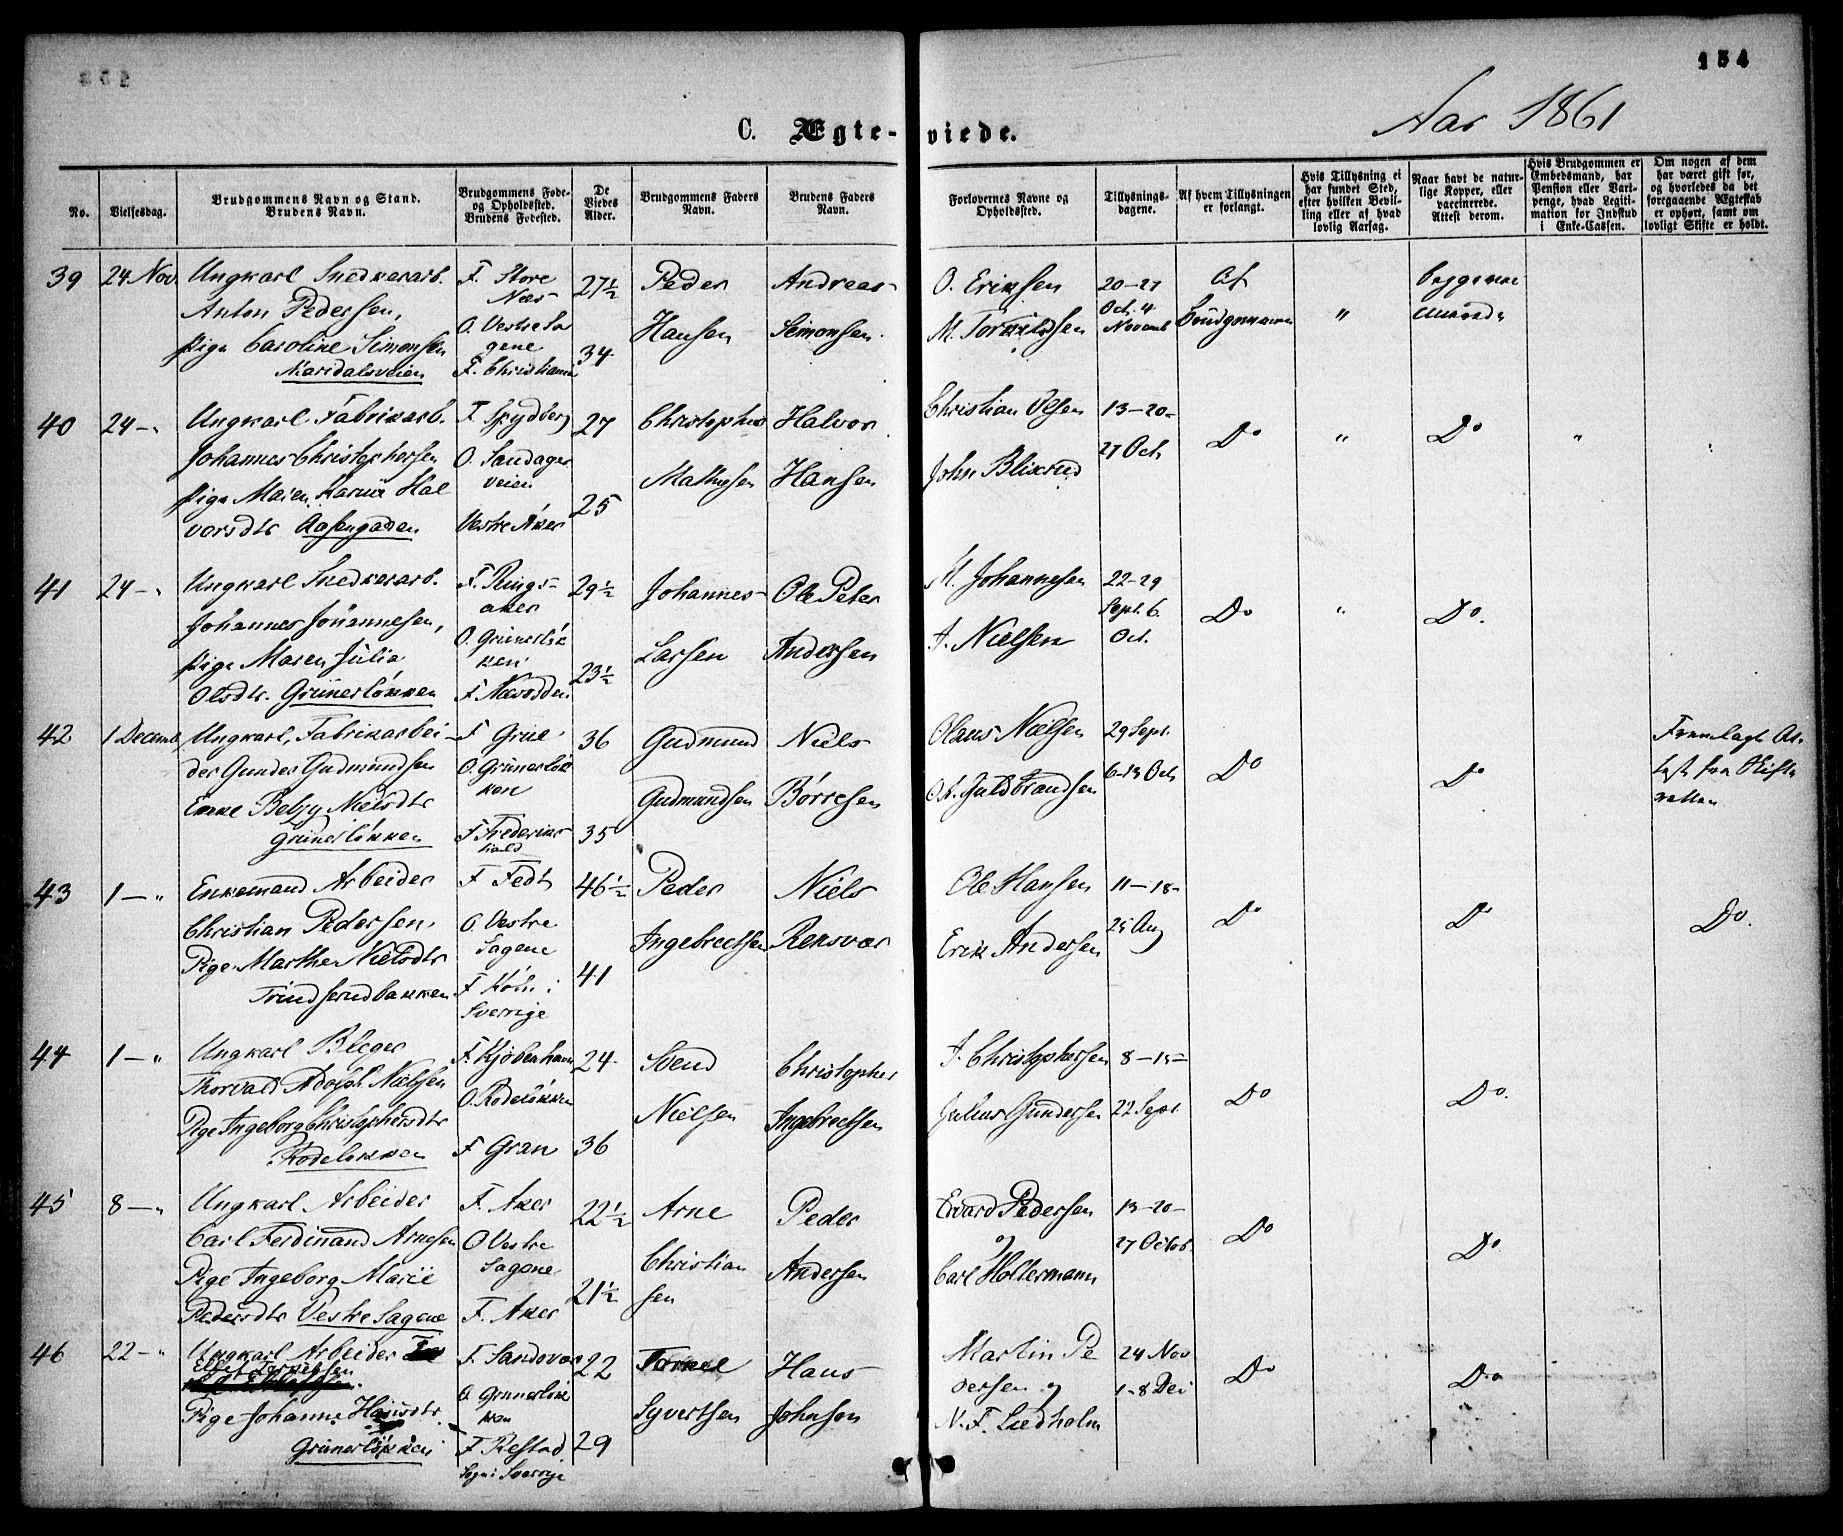 154
Aar 1861
C. Ægte-viede.
No.
Vielsesdag.
Brudgommens Navn og Stand.
Brudens Navn.
Brudgommens Føde-
og Opholdssted.
Brudens Fødested.
De
Viedes
Alder.
Brudgommens Faders
Navn.
Brudens Faders
Navn.
Forlovernes Navne og
Opholdssted.
Tillysnings-
dagene.
Af hvem Tillysningen
er forlangt.
Hvis Tillysning ei
har fundet Sted,
efter hvilken Bevil-
ling eller af hvad
lovlig Aarsag.
Naar havt de natur-
lige Kopper, eller
vaccinerede.
Attest derom.
Hvis Brudgommen er
Embedsmand, har
Pension eller Vart-
penge, hvad Legiti-
mation for Indskud
i Enke-Cassen.
Om nogen af dem
har været gift før,
og hvorledes da det
foregaaende Ægteskab
er ophørt, samt om
lovligt Skifte er holdt.
39
24 Nov.
Ungkarl Snedkerarb.
Anton Pedersen,
Pige Caroline Simonsen
Maridalsveien
F. Store
Næs
O. Vestre Sa
gene
F. Christiania
27½
34
Peder
Hansen
Andreas
Simonsen.
O. Eriksen
20-27
Oct. 4
Novemb
Af
Brudgommen
"
Begge vac
40
24 - "
Ungkarl Fabrikarb.
Johannes Christophersen
Pige Maren Karine Hal
vorsdtr Aasengaden
F. Spydberg
O. Sandager
veien
Vestre Aker
27
25
Christopher
Mathisen
Halvor
Hansen
Christian Olsen
John Blixrud
13-20-
27 Oct.
Do
"
Do
"
41
24 - "
Ungkarl Snedkerarb.
Johannes Johannesen,
Pige Maren Julia
Olsdtr. Grünerløkken
F. Rings-
aker
O. Grünerløk
ken
F. Næsodden.
29½
23½
Johannes
Larsen
Ole Peter
Andersen
M. Johannesen
J. Nielsen
22-29
Sept. 6.
Oct.
Do
"
Do.
42
1 Decemb
Ungkarl, Fabrikarbei-
der Gunder Gudmundsen
Enke Betzy Nielsdtr
Grünerløkken
F Grue
O. Grünerløk
ken
F Frederiks-
hald
36
35
Gudmund
Gudmundsen
Niels
Børresen
Olaus Nielsen
Guldbrandsen
29 Sept.
6-13 Oct.
Do
Do
Fremlagt At-
test fra Skifte
retten
43
1 - "
Enkemand Arbeider
Christian Pedersen.
Pige Marthe Nielsdtr
Trindserudbakken
F. Fedt
O. Vestre
Sagene
F. Køln i
Sverrige
46½
41
Peder
Ingebrectsen
Niels
Reksvar
Ole Hansen
Erik Andersen
11-18-
25 Aug
Do
Do
Do.
44
1 - "
Ungkarl Bleger
Thorvald Adolph Nielsen
Pige Ingeborg Christophersdtr
Rodeløkken
F. Kjøbenhavn
O. Rodeløkken
F Gran
24
36
Svend
Nielsen
Christopher
Ingebrectsen
J. Christophersen
Julius Gundersen
8-15-
22 Sept.
Do
Do.
45
8 - "
Ungkarl Arbeider
Carl Ferdinand Arnesen
Pige Ingeborg Marie
Pedersdtr Vestre Sagene
F. Aker
O Vestre
Sagene
F. Aker
22½
21½
Arne
Christian
sen
Peder
Andersen
Edvard Pedersen
og
Carl Holtermann
13-20-
27 Octob.
Do
Do.
46
22 - "
Ungkarl Arbeider
Pige Johanne Hansdtr.
Grünerløkken
F. Sandsvær
O. Grünerløk
ken
F. Restad
Sogn i Sverrige
22
29
Syvertsen
Hans
Johnson
Martin Pe
dersen og
N. F. Liedholm
24 Nov
1-8 Dec
Do
Do